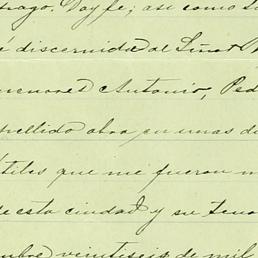 Doy fe; asi como
discernida al Señor
menores Antonio, Ped
apellido obra en unas d
que me fueron
de esta ciudad y su teno
veintiseis de mil